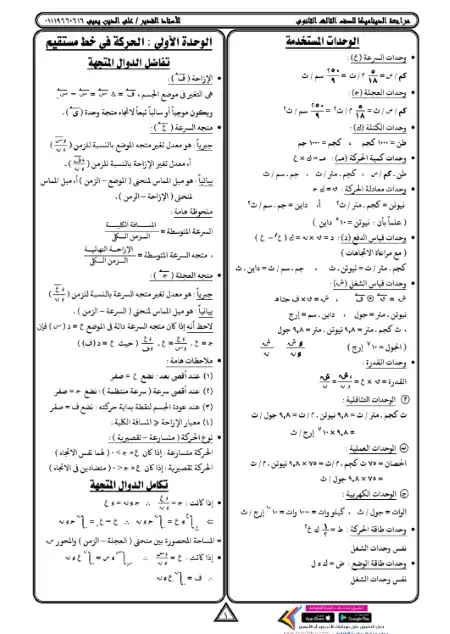 مراجعة الديناميكا للصف الثالث الثانوي
الأستاذ القدير / على الدين يحيى ٠١١١٩٩٦٠٦١٦
الوحدات المستخدمة
• وحدات السرعة (ع) :
كم / س = ٥/١٨ م / ث = ٢٥٠/٩ سم / ث
• وحدات العجلة (ج) :
كم / س / ث = ٥/١٨ م / ث٢ = ٢٥٠/٩ سم / ث٢
• وحدات الكتلة (ك) :
طن = ١٠٠٠ كجم ، كجم = ١٠٠٠ جم
• وحدات كمية الحركة (م) : م = ك × ع
طن . كم / س ، كجم . متر / ث ، جم . سم / ث
• وحدات معادلة الحركة : ق = ك ج
نيوتن = كجم . متر / ث٢ أ، داين = جم . سم / ث٢
( علماً بأن : نيوتن = ١٠ ٥ داين )
• وحدات قياس الدفع (د) : د = ق × ن = ك ( ع/ - ع )
( مع مراعاة الاتجاهات )
كجم . متر / ث = نيوتن . ث ، جم . سم / ث = داين . ث
• وحدات قياس الشغل (ش) :
نيوتن . متر = جول ، داين . سم = إرج
، ث كجم . متر = ٩,٨ نيوتن . متر = ٩,٨ جول
( الجول = ١٠ ٧ إرج )
• وحدات القدرة :
ث كجم . متر / ث = ٩,٨ نيوتن . م / ث = ٩,٨ جول / ث
= ٩,٨ × ١٠ ٧ إرج / ث
الوحدات العملية :
الحصان = ٧٥ ث كجم . م / ث = ٧٥ × ٩,٨ نيوتن . م / ث
= ٧٥ × ٩,٨ جول / ث
الوحدات الكهربية :
الوات = جول / ث ، كيلو وات = ١٠٠٠ وات = ١٠ ١٠ إرج / ث
• وحدات طاقة الحركة : ط = ١/٢ ك ع٢
نفس وحدات الشغل
• وحدات طاقة الوضع : ض = ك و ل
نفس وحدات الشغل
الوحدة الأولى : الحركة في خط مستقيم
تفاضل الدوال المتجهة
• الإزاحة ( ف ) :
ويكون موجباً أو سالباً تبعاً لاتجاه متجه وحدة ( ى ) .
• متجه السرعة ( ع ) :
جبرياً : هو معدل تغير متجه الموضع بالنسبة للزمن
أ، معدل تغير الإزاحة بالنسبة للزمن
بيانياً : هو ميل المماس لمنحنى ( الموضع - الزمن ) أ، ميل المماس
لمنحنى ( الإزاحة - الزمن ) .
ملحوظة هامة :
السرعة المتوسطة = المسافة الكلية / الزمن الكلى
، متجه السرعة المتوسطة = الإزاحة النهائية / الزمن الكلى
• متجه العجلة ( ج ) :
جبرياً : هو معدل تغير متجه السرعة بالنسبة للزمن
بيانياً : هو ميل المماس لمنحنى ( السرعة - الزمن ) .
لاحظ أنه إذا كان متجه السرعة دالة فى الموضع ع = د ( س ) فإن
• ملاحظات هامة :
(١) عند أقصى بعد : نضع ع = صفر
(٢) عند أقصى سرعة ( سرعة منتظمة ) : نضع ج = صفر
(٣) عند عودة الجسم لنقطة بداية حركته : نضع ف = صفر
(٤) معيار الإزاحة ≤ المسافة الكلية .
• نوع الحركة ( متسارعة - تقصيرية ) :
الحركة متسارعة : إذا كان ع × ج > ٠ ( لهما نفس الاتجاه )
الحركة تقصيرية : إذا كان ع × ج < ٠ ( متضادين فى الاتجاه )
تكامل الدوال المتجهة
• إذا كانت :
= المساحة المحصورة بين منحنى ( العجلة - الزمن ) والمحور س
• إذا كانت :
١
App Store
Google Play